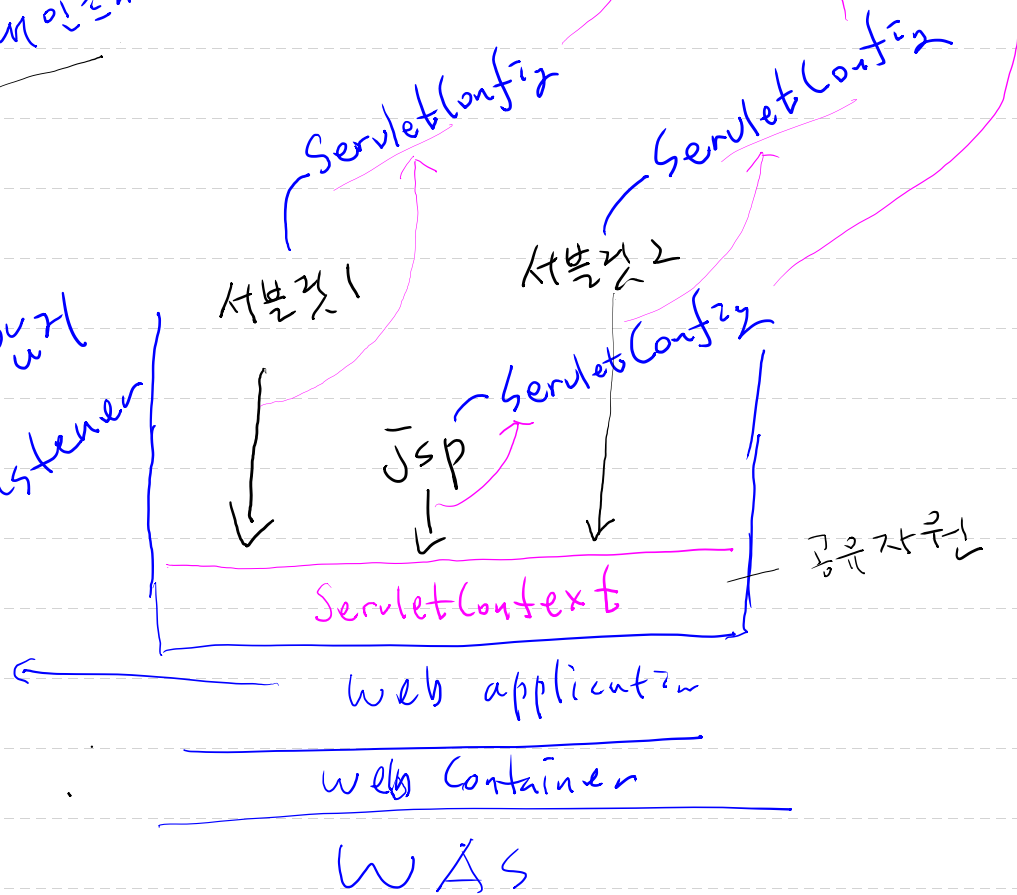 ServletConfig
ServletConfig
서블릿1
서블릿2
ServletConfig
jsp
공유자원
ServletContext
web application
web Container
WAS